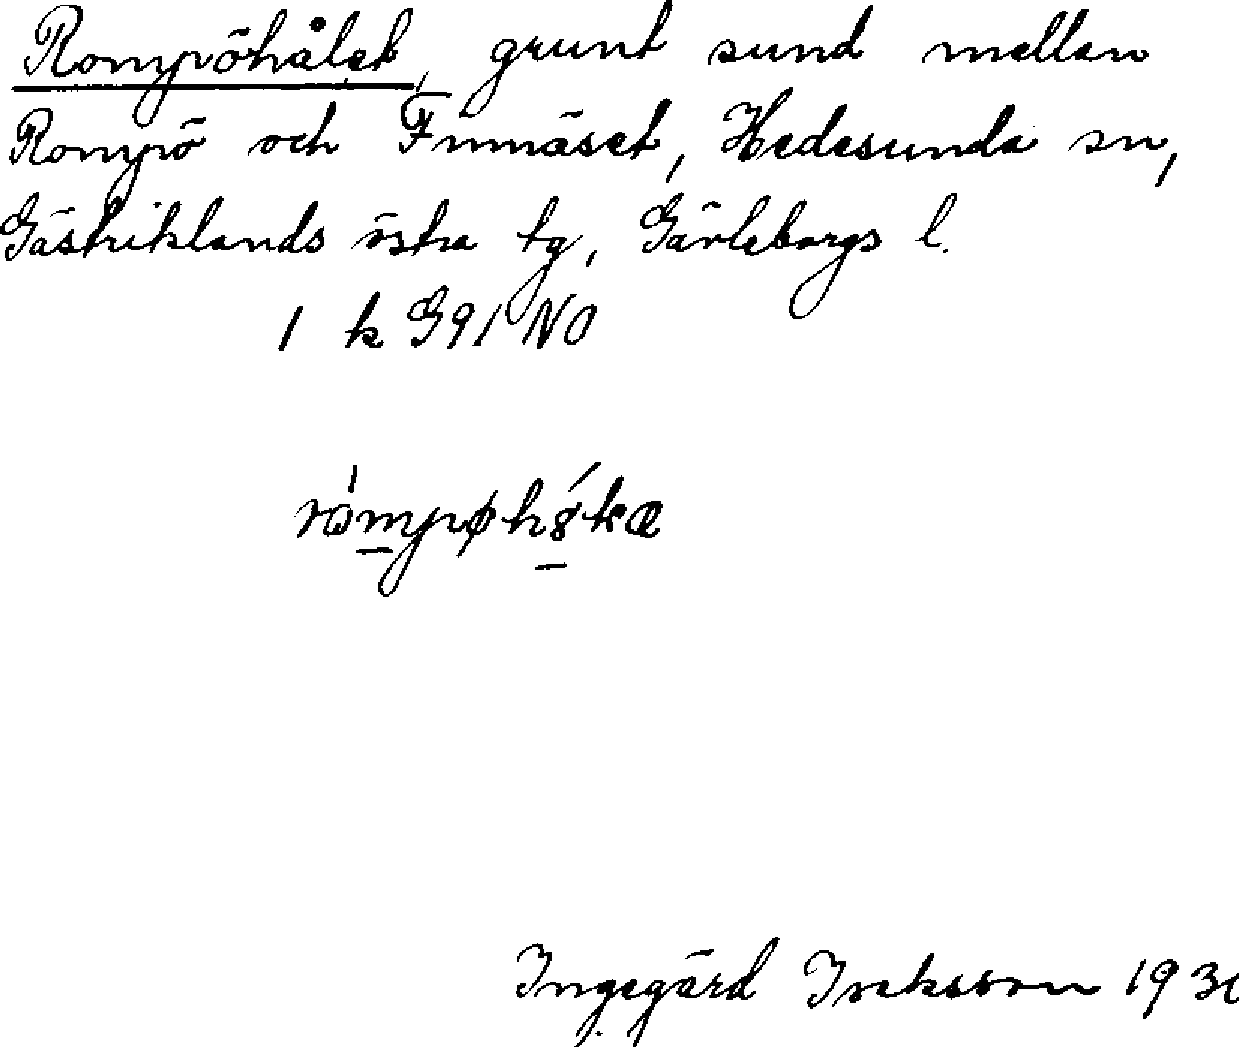 Rompöhålet, grunt sund mellan
Rompö och Finnäset, Hedesunda sn,
Gästriklands östra tg, Gävleborgs l.
1 k G91 NO
Ingegärd 193